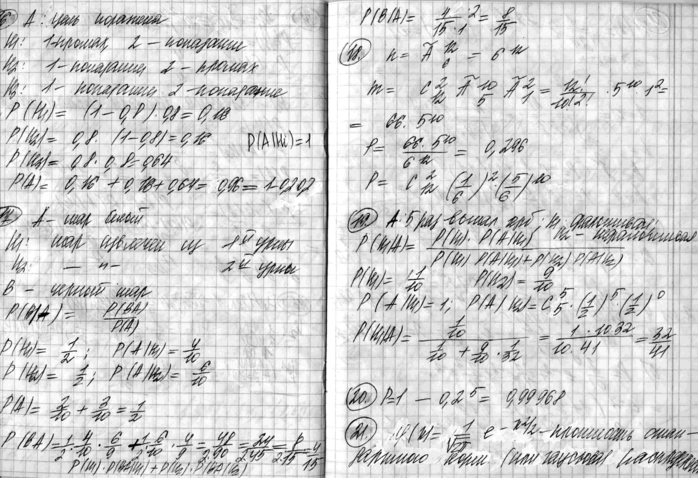 A: цель поражена
H₁: 1-промах 2 – попадание
H₂: 1 – попадание 2 – промах
H₃: 1 – попадание 2 – попадание
P(H₁) = (1–0,8)·0,8 = 0,16
P(H₂) = 0,8·(1–0,8) = 0,16 P(A|Hi)=1
P(H₃) = 0,8·0,8 = 0,64
P(A) = 0,16 + 0,16 + 0,64 = 0,96 = 1–0,2·0,2
17. A – шар белый
H₁: шар извлечен из 1й урны
H₂: — "— 2й урны
B – черный шар
P(B|A) = P(BA)/P(A)
P(H₁) = 1/2; P(A|H₁) = 4/10
P(H₂) = 1/2; P(A|H₂) = 6/10
P(A) = 2/10 + 3/10 = 1/2
P(BA) = 1/2·4/10·6/9 + 1/2·6/10·4/9 = 48/2·90 = 24/2·45 = 8/2·15 = 4/15
P(H₁)·P(BA|H₁) + P(H₂)·P(BA|H₂)
P(B|A) = 4/15·1·2 = 8/15
18. n = Ã 12 6 = 6¹²
m = C 2 12 Ã 10 5 Ã 2 1 = 12!/10!2! · 5¹⁰ 1² =
= 66·5¹⁰
P = 66·5¹⁰/6¹² = 0,296
P = C 2 12 (1/6)²(5/6)¹⁰
19. A: 5 раз выпал герб; H₁ – фальшивая;
P(H₁|A) = P(H₁)·P(A|H₁)/P(H₁)P(A|H₁)+P(H₂)P(A|H₂) H₂ – нормальная
P(H₁) = 1/10 P(H₂) = 9/10
P(A|H₁) = 1; P(A|H₂) = C 5 5·(1/2)⁵(1/2)⁰
P(H₁|A) = 1/10/1/10 + 9/10·1/32 = 1·10·32/10·41 = 32/41
20. P=1 – 0,2⁵ = 0,99968
21. φ(x) = 1/√2π e^–x²/2 – плотность стан-
дартного норм. (или гауссова) распределен